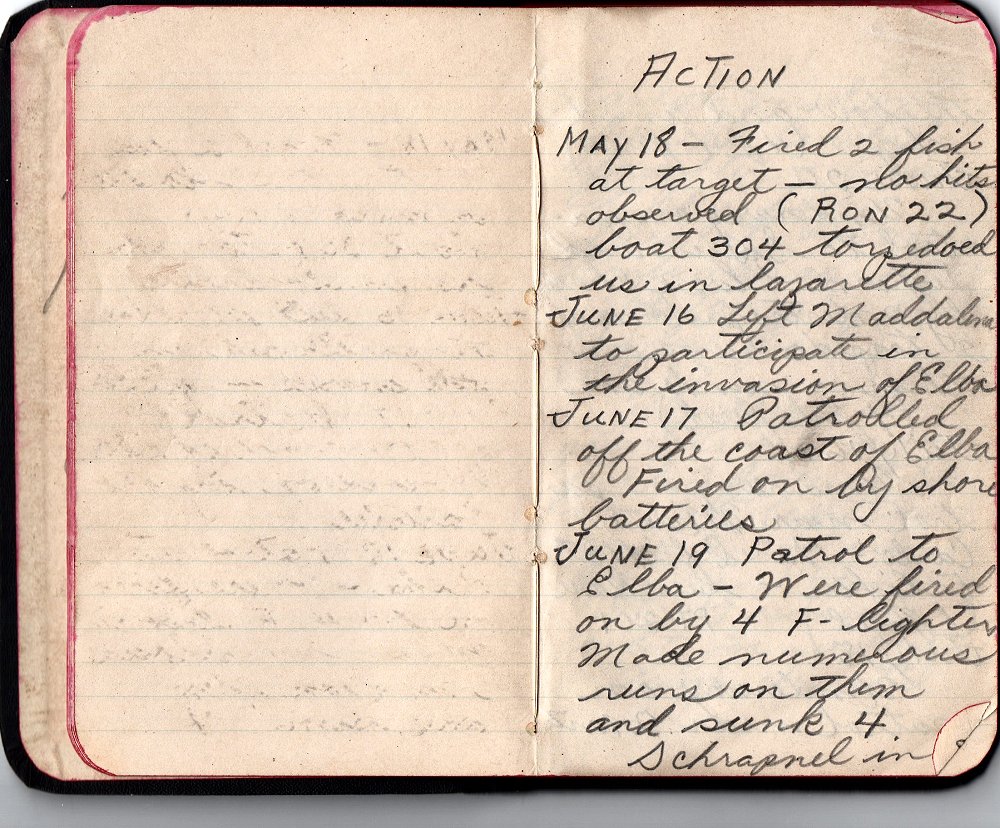 ACTION
MAY 18 — Fired 2 fish
at target — no hits
observed (RON 22)
boat 304 torpedoed
us in lazarette
JUNE 16 Left Maddalena
to participate in
the invasion of Elba
JUNE 17 Patrolled
off the coast of Elba
Fired on by shore
batteries
JUNE 19 Patrol to
Elba — Were fired
on by 4 F-lighters
Made numerous
runs on them
and sunk 4
Schrapnel in